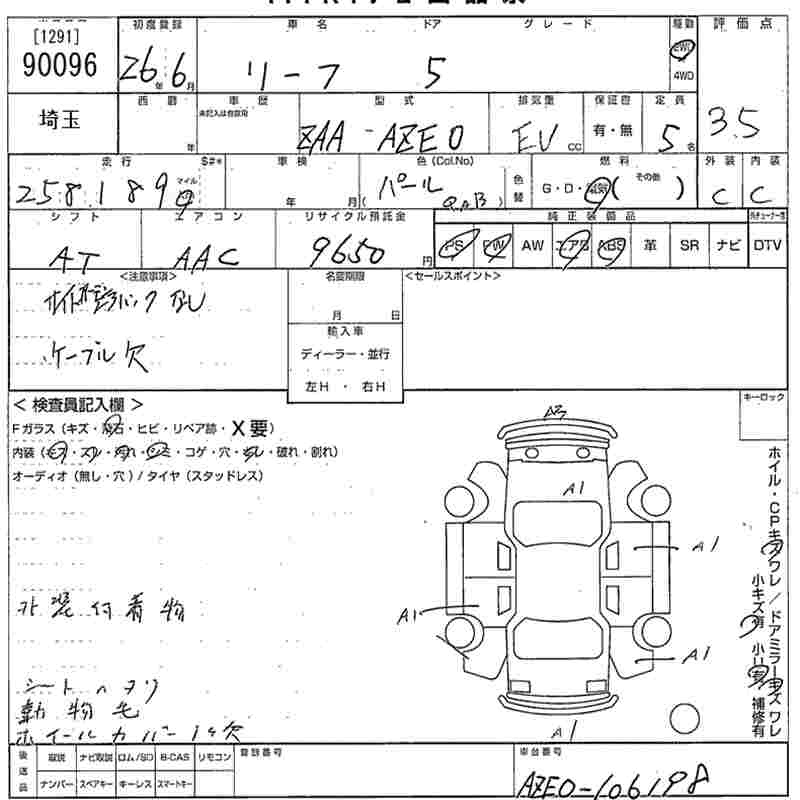 [1291]
90096
初度登録 車名 ドア グレード 駆動 評価点
26年 6月 リーフ 5 2WD 4WD
埼玉
西暦 車歴 型式 排気量 保証書 定員
未記入は自家用
年 ZAA-AZE0 EV CC 有・無 5名 3.5
走行 S#* 車検 色(Col.No) 燃料 外装 内装
258189 マイル km 年 月 (パール QAB) 色替 G・D・ ( その他 ) C C
シフト エアコン リサイクル預託金 純正装備品
AT AAC 9650円 PS PW AW エアB ABS 革 SR ナビ DTV
<注意事項> 名変期限 <セールスポイント>
サイドエアバック なし
月 日
ケーブル欠
輸入車
ディーラー・並行
左H ・ 右H
< 検査員記入欄 > キーロック
Fガラス (キズ・飛石・ヒビ・リペア跡・X要)
内装 (キズ・スレ・汚れ・シミ・コゲ・穴・破れ・割れ)
オーディオ (無し・穴) / タイヤ (スタッドレス)
A3
A1
A1
A1
A1
A1
ホイル・CPキズワレ / ドアミラーキズワレ
小キズ有 小凹有 補修有
外装付着物
シートヘタリ
動物毛
ホイールカバー1ケ欠
後送品 取説 ナビ取説 ロム/SD B-CAS リモコン 登録番号 車台番号
ナンバー スペアキー キーレス スマートキー AZE0-106198